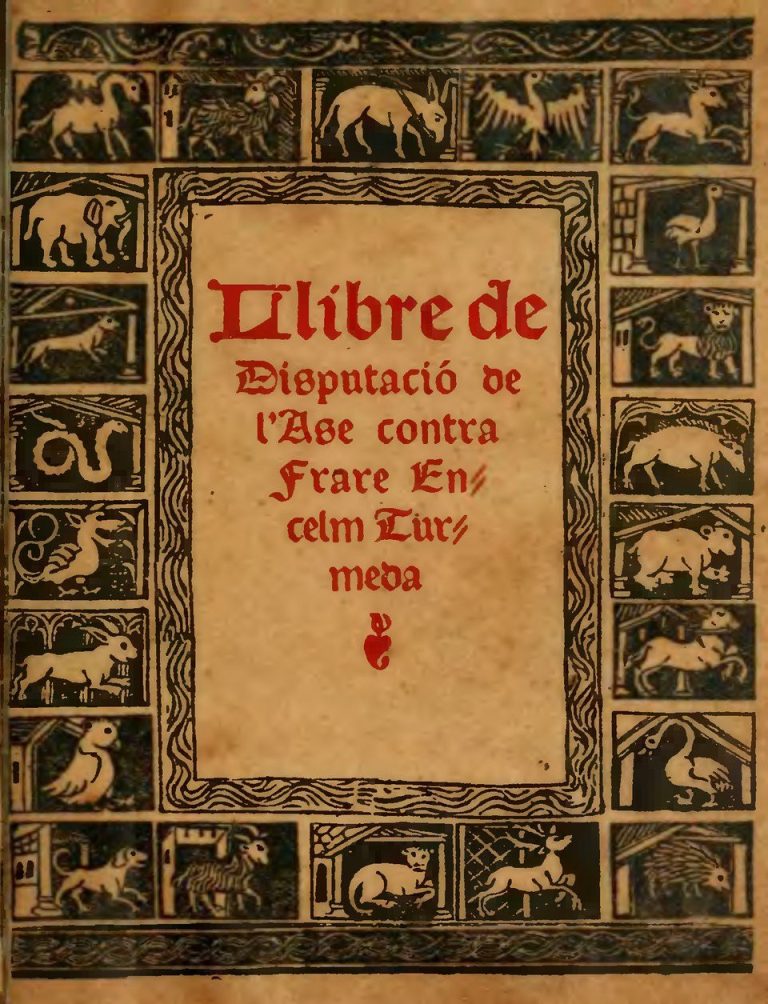 Llibre de
Disputació de
l'Ase contra
Frare En⸗
celm Tur⸗
meda